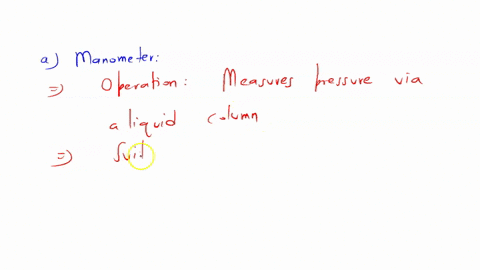 a) Manometer:
⇒ Operation: Measures pressure via
a liquid column
⇒ Suit